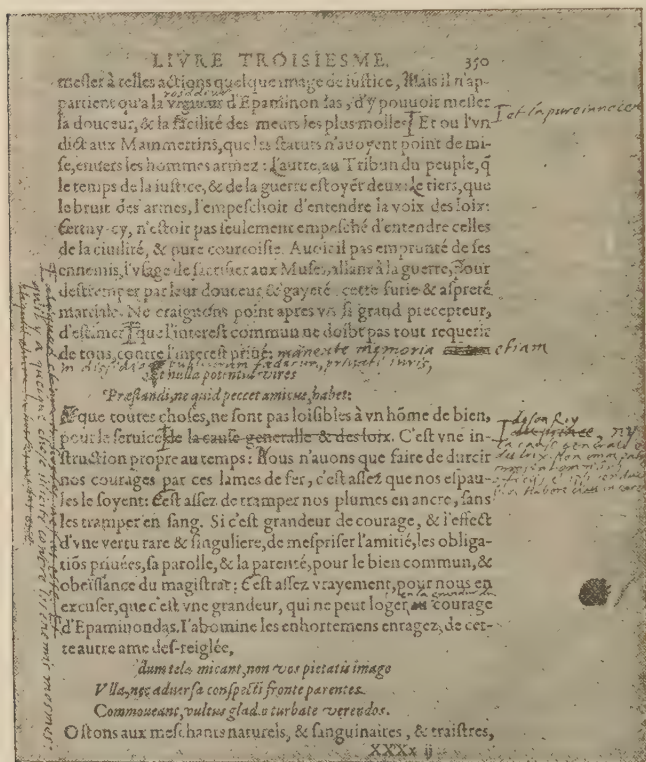 LIVRE TROISIESME. 350
mesler à telles actions quelque image de iustice, Mais il n'ap-
partient qu'a la vigueur d'Epaminondas, d'y pouuoir mesler
roideur
la douceur, & la facilité des meurs les plus molles Et ou l'vn
et la pure
dict aux Mammertins, que les statuts n'auoyent point de mi-
se, enuers les hommes armez: L'autre, au Tribun du peuple, q̃
le temps de la iustice, & de la guerre estoyẽt deux: Le tiers, que
le bruit des armes, l'empeschoit d'entendre la voix des loix:
Cettuy-cy, n'estoit pas seulement empesché d'entendre celles
de la ciuilité, & pure courtoisie. Auoit il pas emprunté de ses
ennemis, l'vsage de sacrifier aux Muses allant à la guerre, Pour
destremper par leur douceur & gayeté cette furie & aspreté
martiale. Ne craignons point apres vn si grand precepteur,
d'estimer que l'interest commun ne doibt pas tout requerir
de tous, contre l'interest priué: manente memoria etiam
in dissidio publicorum fœderum, priuati iuris,
& nulla potentia vires
Præstandi, ne quid peccet amicus, habet:
Et que toutes choses, ne sont pas loisibles à vn hõme de bien,
de son Roy
pour le seruice de la cause generalle & des loix. C'est vne in-
ny
la cause generale &
des loix. Non enim patria
struction propre au temps: Nous n'auons que faire de durcir
nos courages par ces lames de fer, c'est assez que nos espau-
les le soyent: C'est assez de tramper nos plumes en ancre, sans
les tramper en sang. Si c'est grandeur de courage, & l'effect
d'vne vertu rare & singuliere, de mespriser l'amitié, les obliga-
tiõs priuées, sa parolle, & la parenté, pour le bien commun, &
obeïssance du magistrat: C'est assez vrayement, pour nous en
excuser, que c'est vne grandeur, qui ne peut loger au courage
d'Epaminondas. I'abomine les enhortemens enragez, de cet-
te autre ame des-reiglée,
dum tela micant, non vos pietatis imago
Vlla, nec aduersa conspecti fronte parentes
Commoueant, vultus gladio turbate verendos.
Ostons aux meschants naturels, & sanguinaires, & traistres,
XXXx ij
quil y a quelque chose illicite contre les enemis mesmes